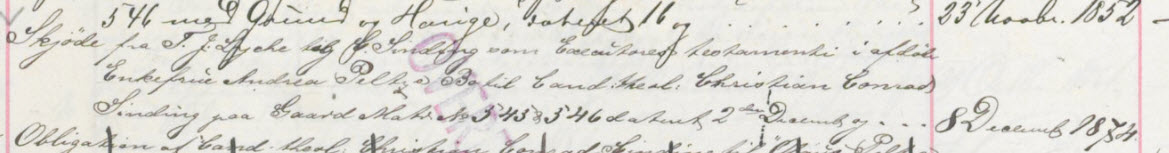 546 med Grund og Havige, dateret 16 og . . . . . . . 23 Novbr. 1852 –
Skjöde fra T. J. Lyche og Sinding som Executores testamenti i afdöde
Enkefrue Andrea Peltz's Bo til Cand. theol. Christian Conrad
Sinding paa Gaard Matr. No 545 & 546 dateret 2den Decemb. og . . . 8 Decemb. 1874.
Obligation af Cand. theol. Christian Conrad Sinding til